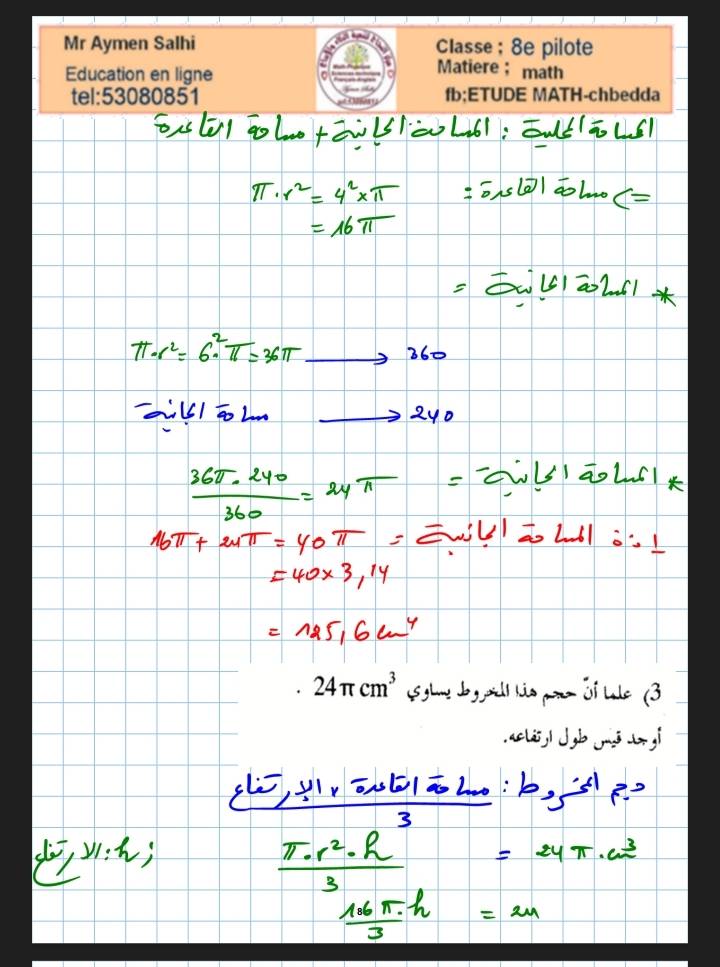 Mr Aymen Salhi
Education en ligne
tel:53080851
Classe ; 8e pilote
Matiere ; math
fb;ETUDE MATH-chbedda
المساحة الجملية : المساحة الجانبية + مساحة القاعدة
=> مساحة القاعدة :
π·r² = 4² × π
= 16 π
* المساحة الجانبية =
π·r² = 6²·π = 36π ⟶ 360
مساحة الجانبية ⟶ 240
* المساحة الجانبية = 36π·240 / 360 = 24π
إذن المساحة الجانبية = 16π + 24π = 40π
= 40 × 3,14
= 125,6 cm⁴
3) علما أنّ حجم هذا المخروط يساوي 24π cm³ .
أوجد قيس طول ارتفاعه.
حجم المخروط : مساحة القاعدة × الإرتفاع / 3
π·r²·h / 3 = 24π·cm³ ; h: الارتفاع
π·h / 3 = 24